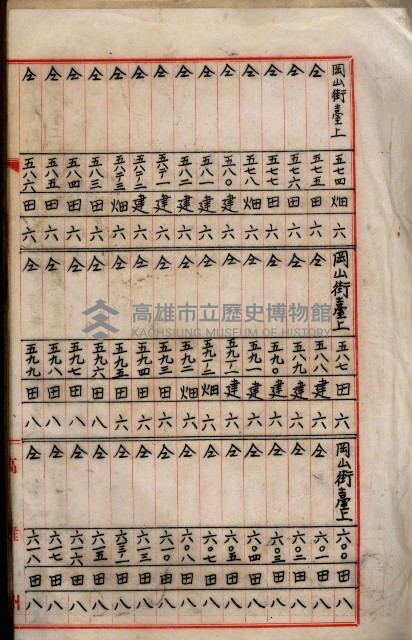 岡山街臺上 五七四 畑 六
仝 五七五 田 六
仝 五七六 田 六
仝 五七七 田 六
仝 五七八 畑 六
仝 五八〇 建 六
仝 五八一 建 六
仝 五八二 建 六
仝 建 六
仝 建 六
仝 畑 六
仝 五八三 田 六
仝 五八四 田 六
仝 五八五 田 六
仝 五八六 田 六
岡山街臺上 五八七 田 六
仝 五八八 建 六
仝 五八九 建 六
仝 五九〇 建 六
仝 五九一 建 六
仝 建 六
仝 畑 六
仝 五九二 畑 六
仝 五九三 田 六
仝 五九四 田 六
仝 五九五 田 六
仝 五九六 田 八
仝 五九七 田 八
仝 五九八 田 八
仝 五九九 田 八
岡山街臺上 六〇〇 田 八
仝 六〇一 田 八
仝 六〇二 田 八
仝 六〇三 田 八
仝 六〇四 田 八
仝 六〇五 田 八
仝 六〇七 田 八
仝 六〇八 田 八
仝 六一〇 田 八
仝 六一三 田 八
仝 田 八
仝 六一五 田 八
仝 六一六 田 八
仝 六一七 田 八
仝 六一八 田 八
高雄州
高雄市立歷史博物館
KAOHSIUNG MUSEUM OF HISTORY